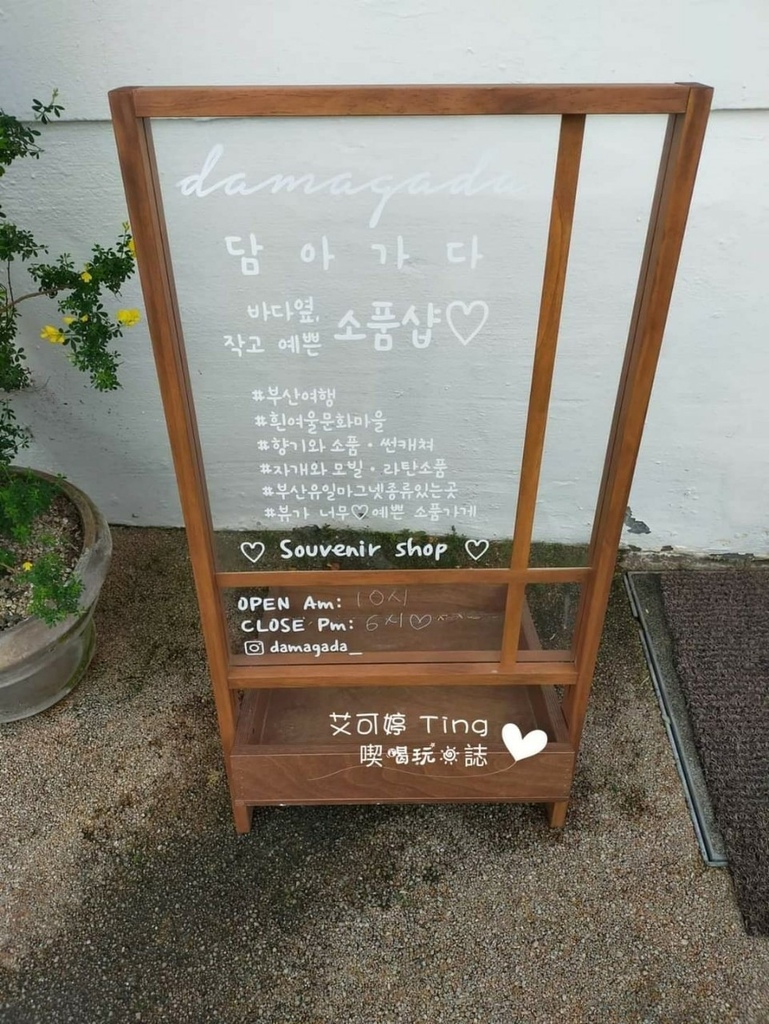 damagada
담아가다
바다옆,
작고 예쁜 소품샵♡
#부산여행
#흰여울문화마을
#향기와 소품·썬캐쳐
#자개와 모빌·라탄소품
#부산유일마그넷종류있는곳
#뷰가 너무♡예쁜 소품가게
♡ Souvenir shop ♡
OPEN Am: 10시
CLOSE Pm: 6시♡
damagada_
艾可婷 Ting
喫喝玩樂誌